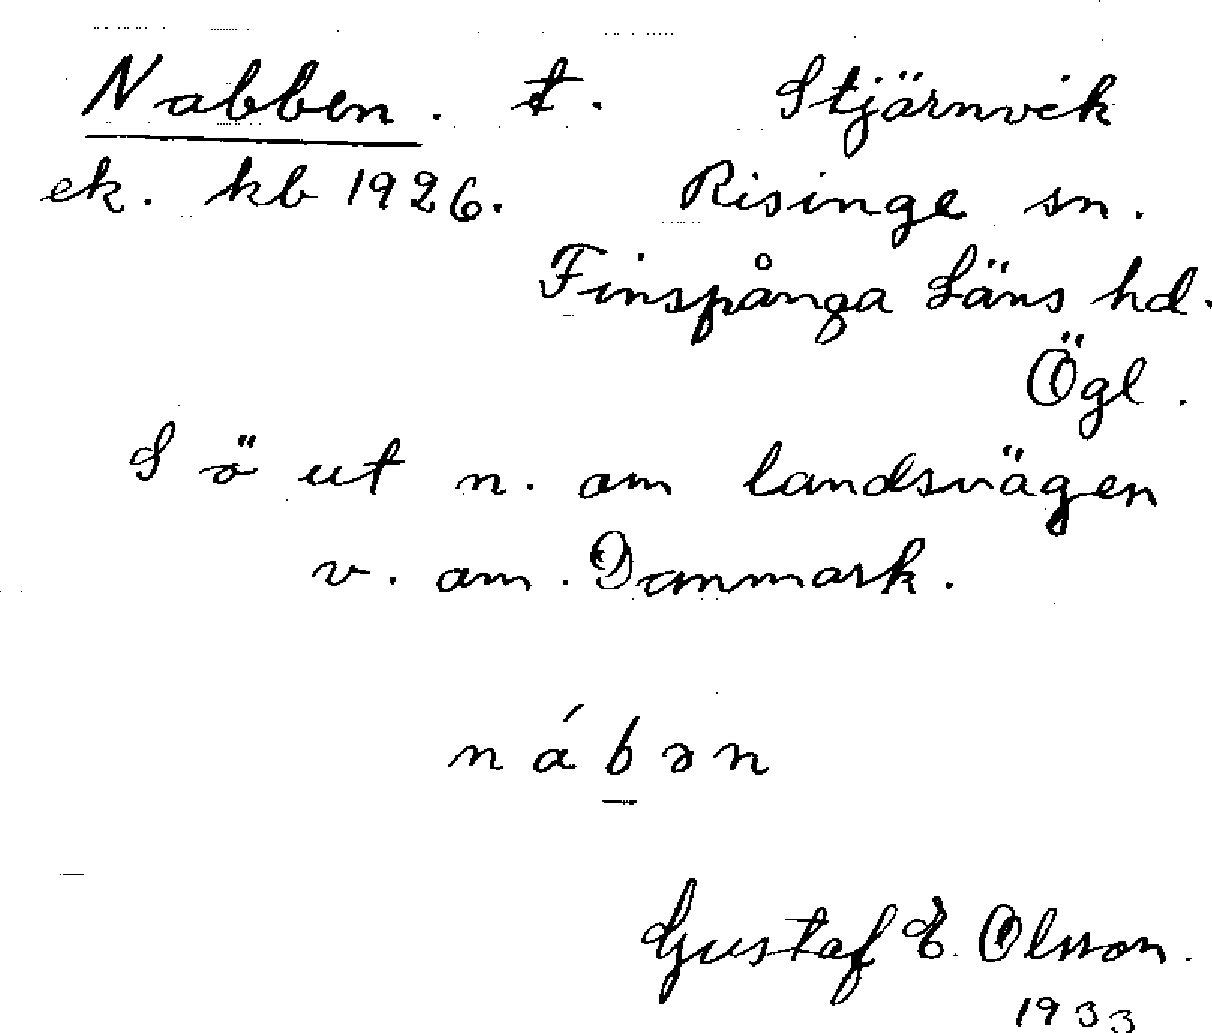 Nabben. t. Stjärnvik
ek. kb 1926. Risinge sn.
Finspånga Läns hd.
Ögl.
S ö ut n. om landsvägen
v. om. Danmark.
nábən
Gustaf E. Olsson.
1933